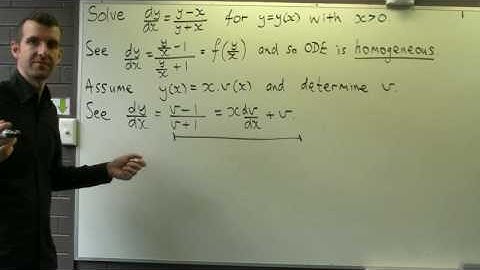 Solve dy/dx = y-x/y+x for y=y(x) with x>0.
See dy/dx = y/x -1 / y/x +1 = f(y/x) and so ODE is homogeneous
Assume y(x)=x.v(x) and determine v.
See dy/dx = v-1/v+1 = x dv/dx + v.